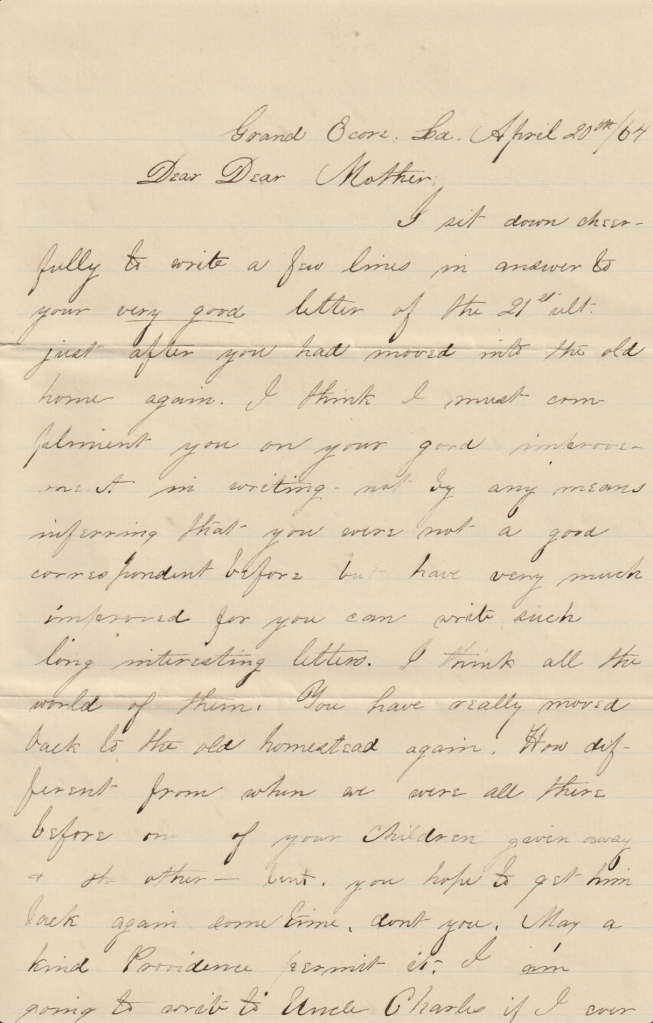 Grand Ecore. La. April 20th/64
Dear Dear Mother;
I sit down cheer-
fully to write a few lines in answer to
your very good letter of the 21st ult.
just after you had moved into the old
home again. I think I must com
pliment you on your good improve-
ment in writing - not by any means
inferring that you were not a good
correspondent before but have very much
improved for you can write such
long interesting letters. I think all the
world of them. You have really moved
back to the old homestead again. How dif-
ferent from when we were all there
before one of your children given away
& the other — lent. you hope to get him
back again some time, dont you. May a
kind Providence permit it. I am
going to write to Uncle Charles if I ever